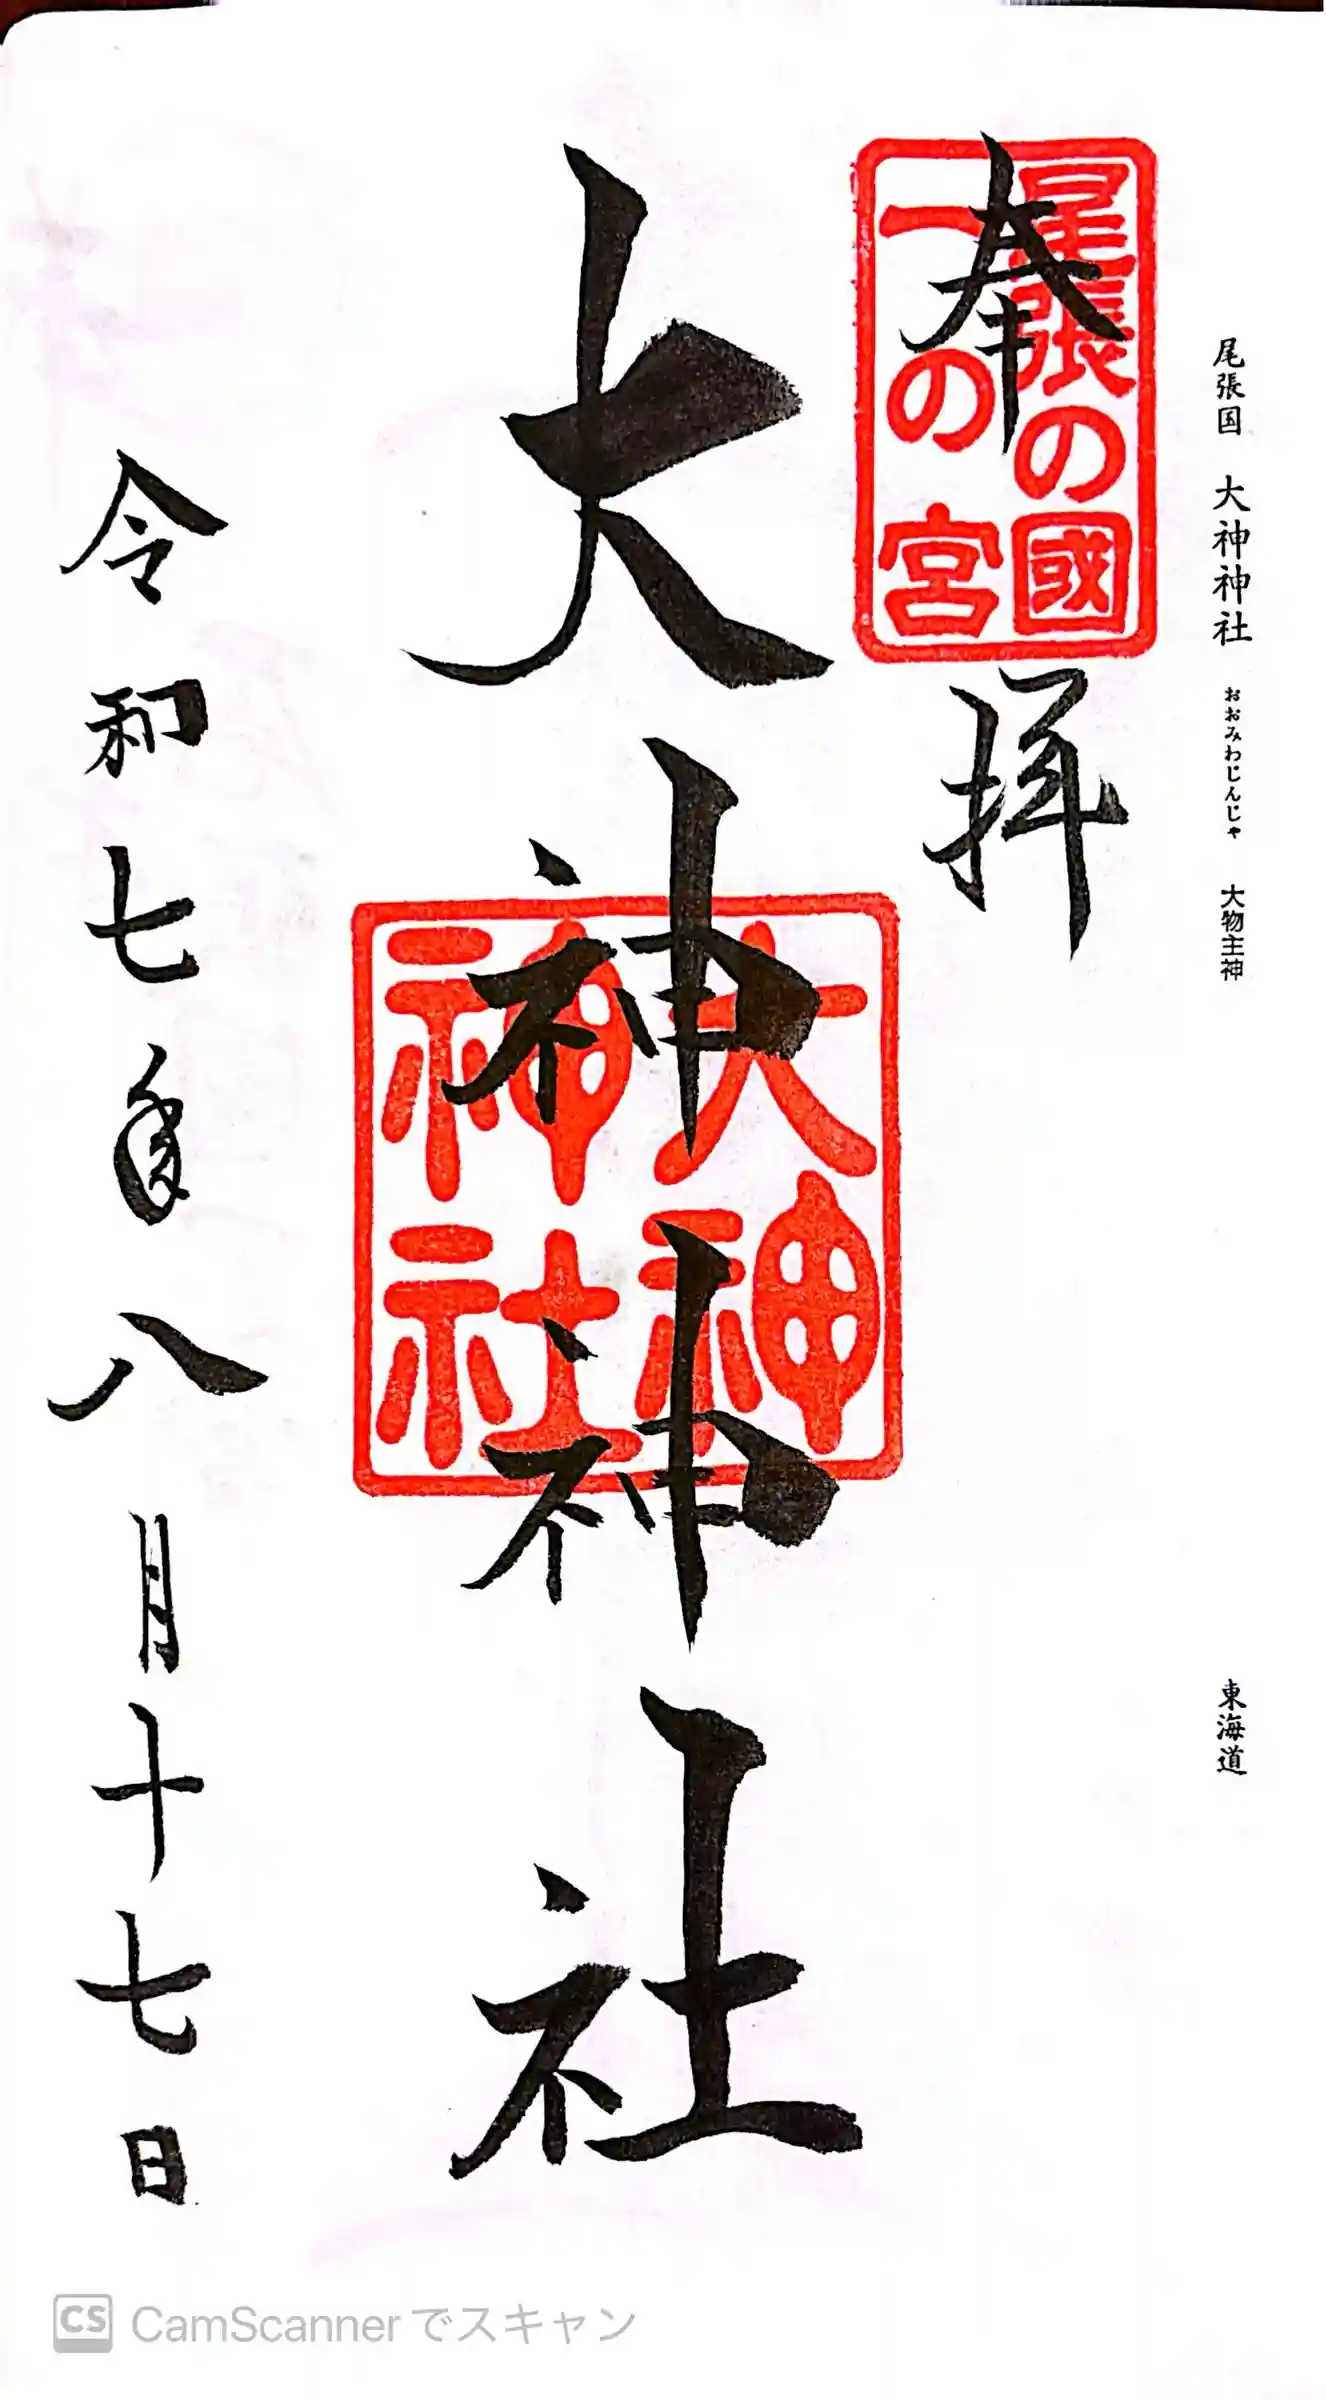 尾張国 大神神社 おおみわじんじゃ 大物主神 東海道
奉拝
尾張の國
一の宮
大神神社
大神
神社
令和七年八月十七日
CS CamScannerでスキャン